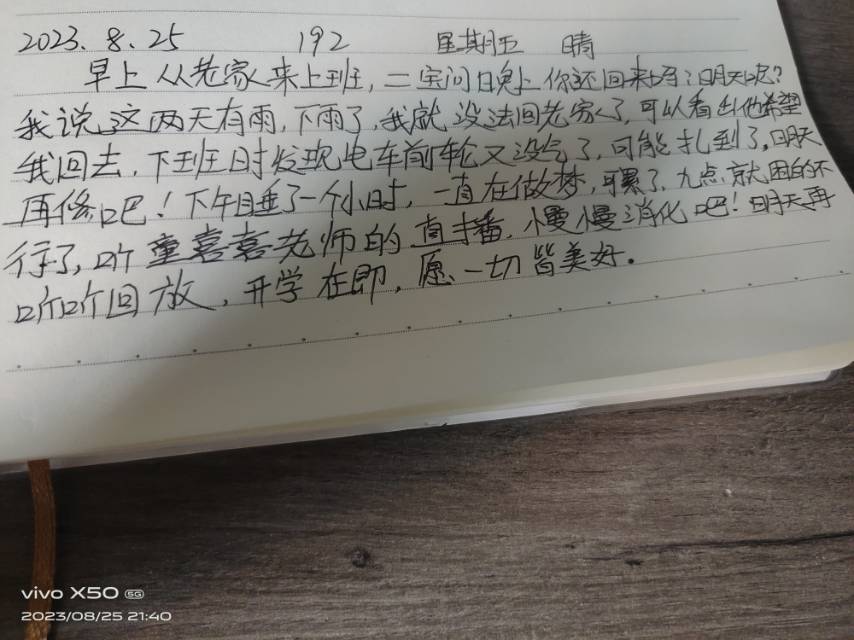 2023.8.25 192 星期五 晴
早上从老家来上班,二宝问晚上你还回来吗?明天呢?
我说这两天有雨,下雨了,我就没法回老家了,可以看出他希望
我回去,下班时发现电车前轮又没气了,可能扎到了,明天
再修吧!下午睡了一个小时,一直在做梦,可累了,九点就困的不
行了,听童喜喜老师的直播,慢慢消化吧!明天再
听听回放,开学在即,愿一切皆美好。
vivo X50 5G
2023/08/25 21:40